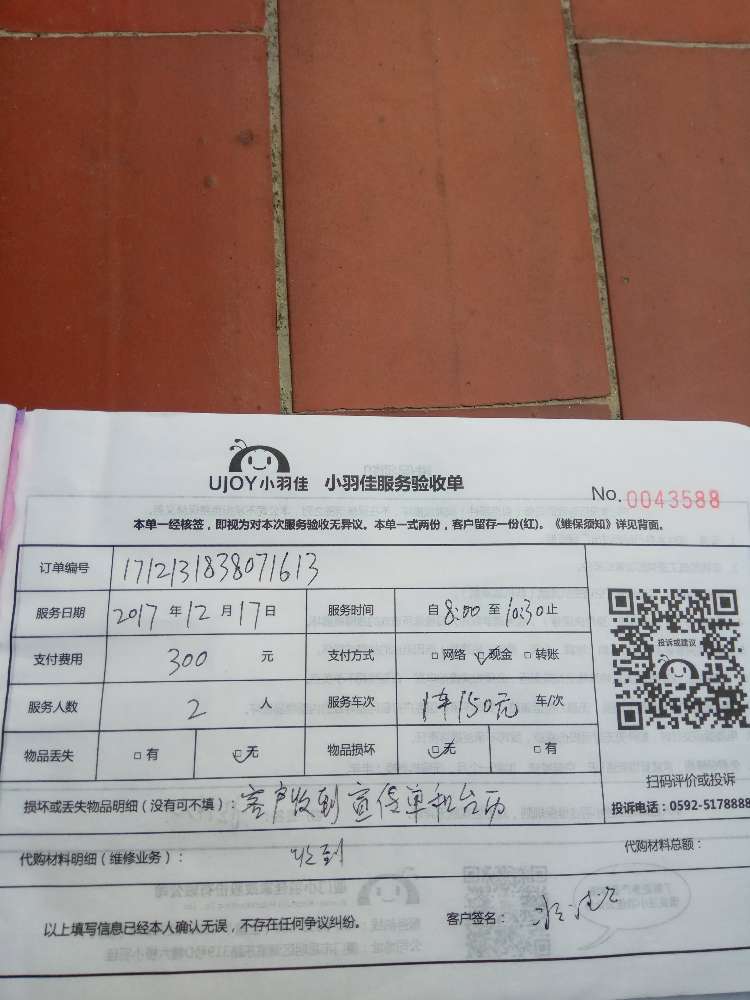 UJOY小羽佳 小羽佳服务验收单
No. 0043588
本单一经核签，即视为对本次服务验收无异议。本单一式两份，客户留存一份(红)。《维保须知》详见背面。
订单编号 1712131838071613
服务日期 2017 年 12 月 17 日 服务时间 自 8:00 至 10:30 止
支付费用 300 元 支付方式 □网络 ☑现金 □转账
服务人数 2 人 服务车次 1车150元 车/次
物品丢失 □有 ☑无 物品损坏 ☑无 □有
投诉或建议
扫码评价或投诉
投诉电话：0592-5178888
损坏或丢失物品明细（没有可不填）：客户收到宣传单和台历
代购材料明细（维修业务）： 收到 代购材料总额：
以上填写信息已经本人确认无误，不存在任何争议纠纷。 客户签名：